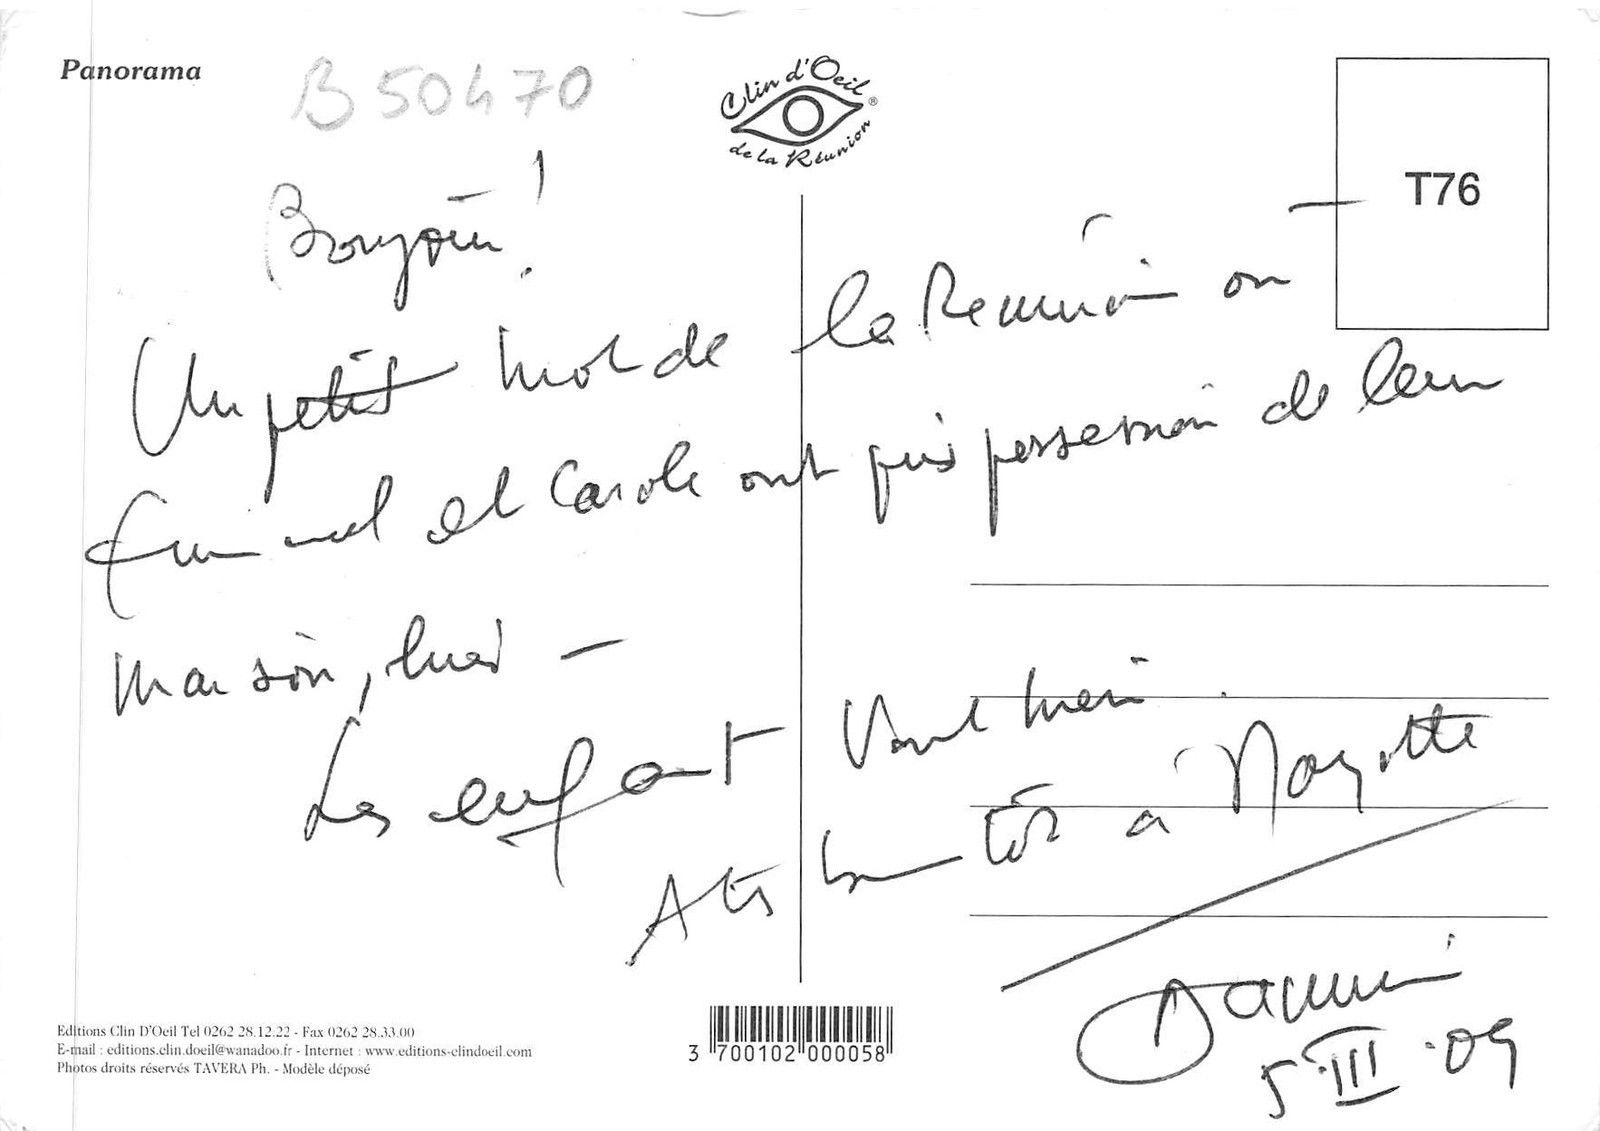 Panorama
B 50470
Clin d'Oeil ®
de la Réunion
T76
Bonjour !
Un petit mot de la Réunion où —
Emmanuel et Carole ont pris possession de leur
maison, hier —
Les enfants vont bien.
A très bientôt à Mayotte
5.III.09
Editions Clin D'Oeil Tel 0262 28.12.22 - Fax 0262 28.33.00
E-mail : editions.clin.doeil@wanadoo.fr - Internet : www.editions-clindoeil.com
Photos droits réservés TAVERA Ph. - Modèle déposé
3 700102 000058